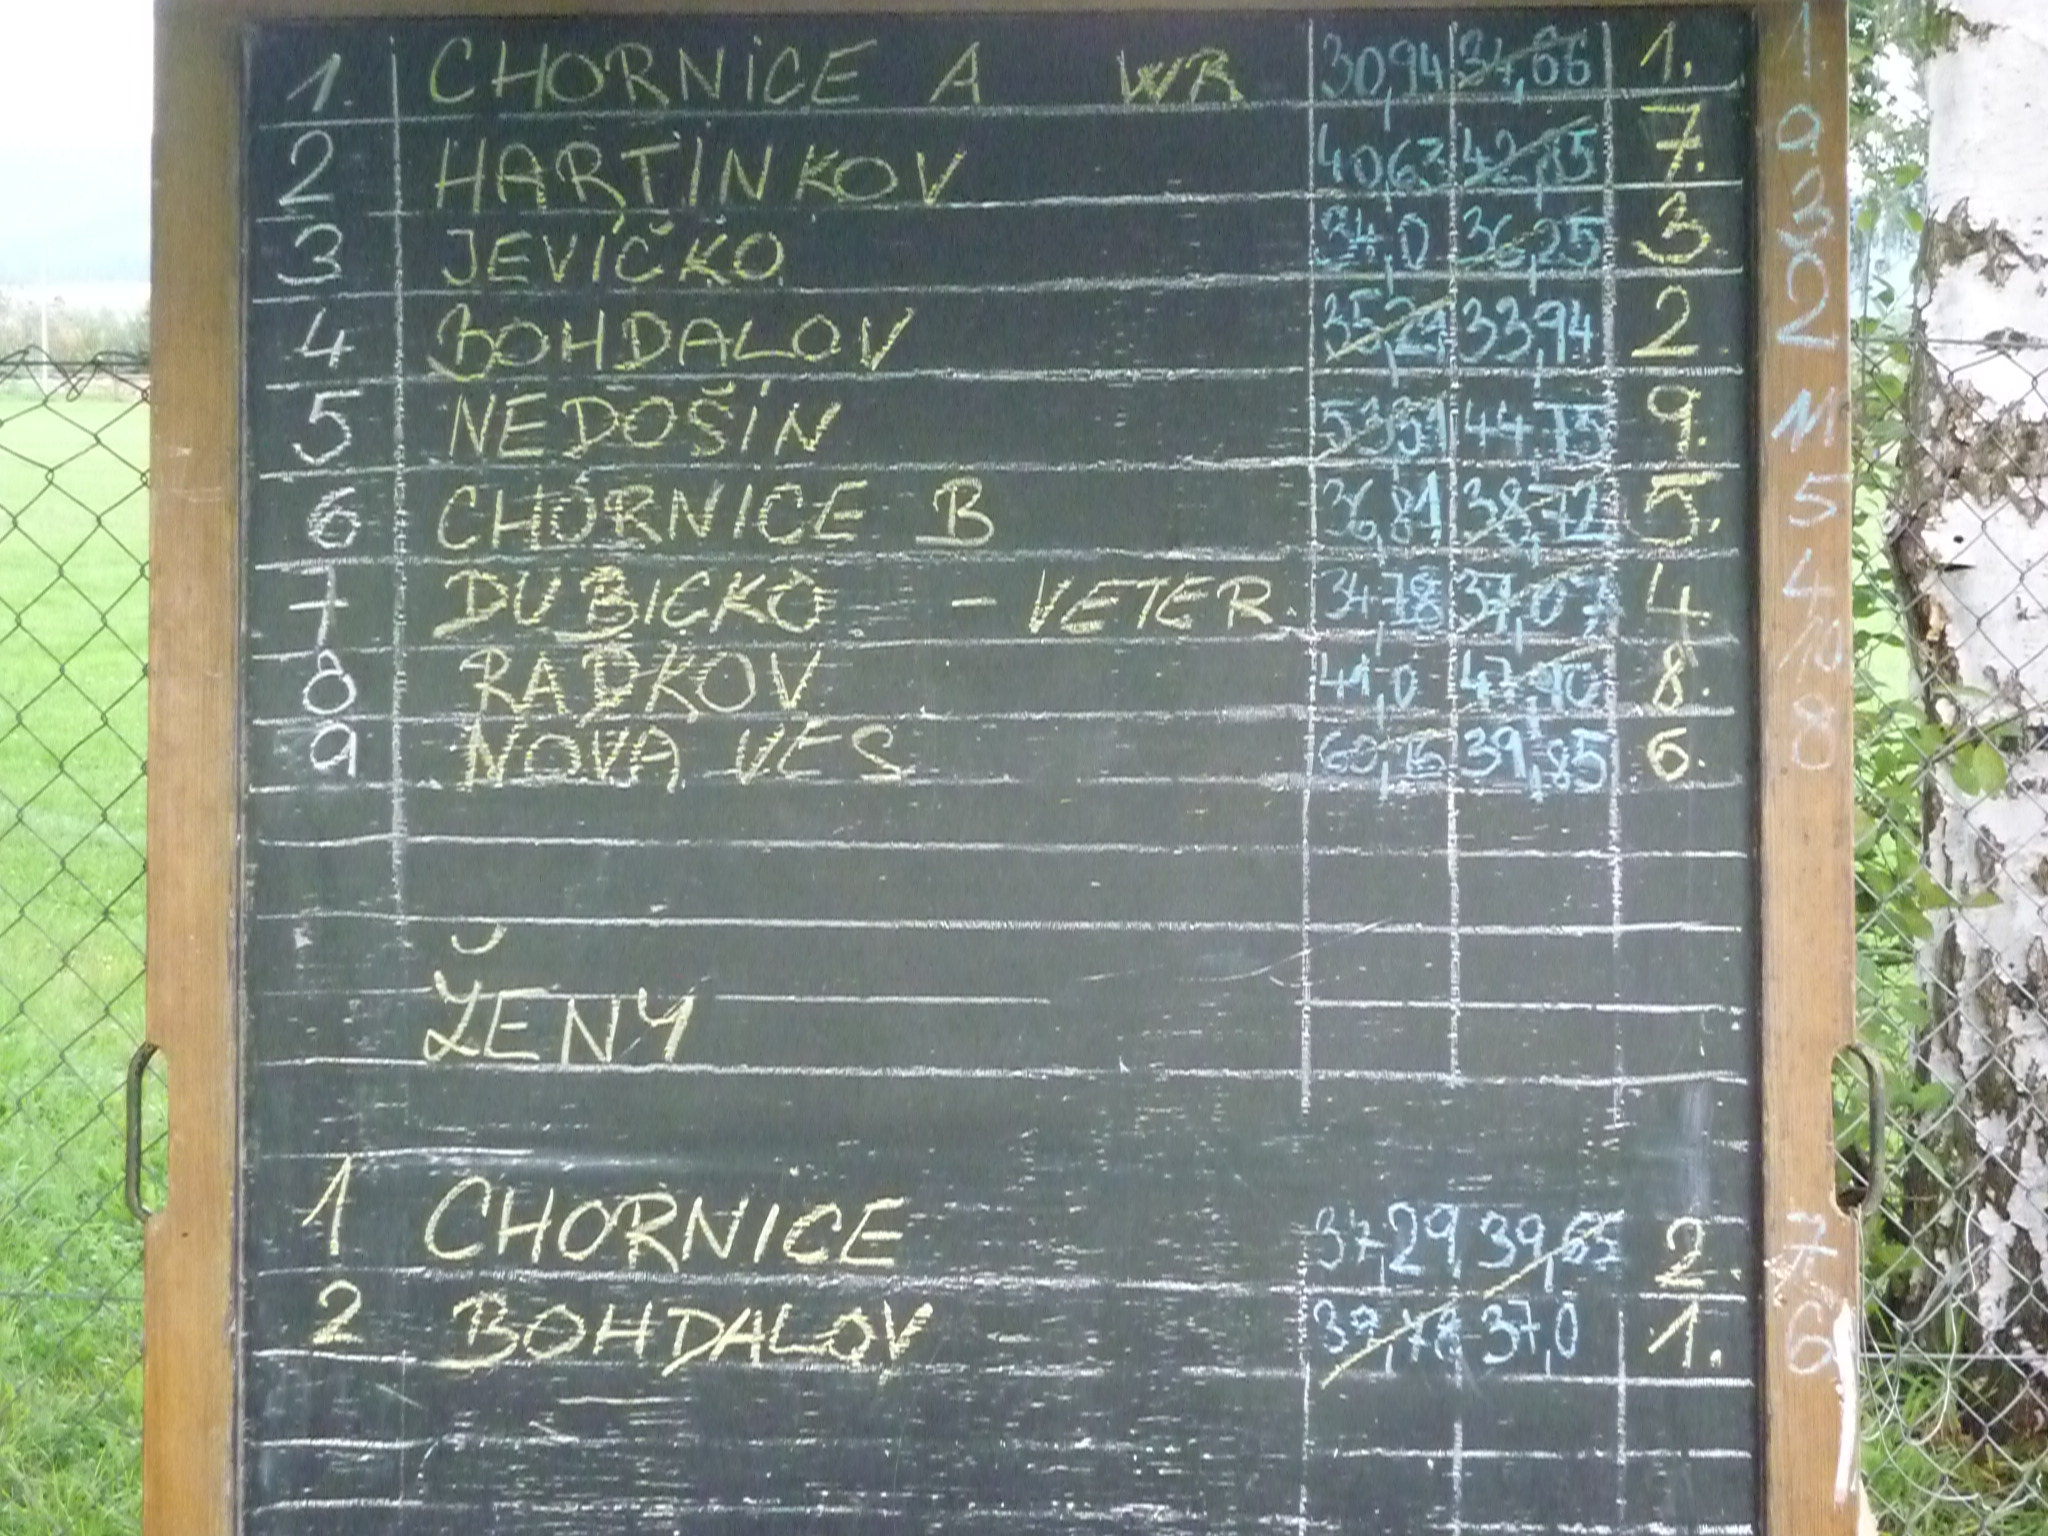 1. CHORNICE A WR 30,94 34,66 1. 1.
2 HARTINKOV 40,63 42,85 7. 9
3 JEVÍČKO 34,0 36,25 3 3
4 BOHDALOV 35,29 33,94 2 2
5 NEDOŠÍN 53,51 44,75 9. 11
6 CHORNICE B 36,81 38,72 5. 5
7 DUBICKO - VETER. 34,78 37,07 4. 4
8 RADKOV 41,0 47,90 8. 10
9 NOVA VES 60,16 39,85 6. 8
ŽENY
1 CHORNICE 37,29 39,65 2. 7
2 BOHDALOV 37,0 1. 6